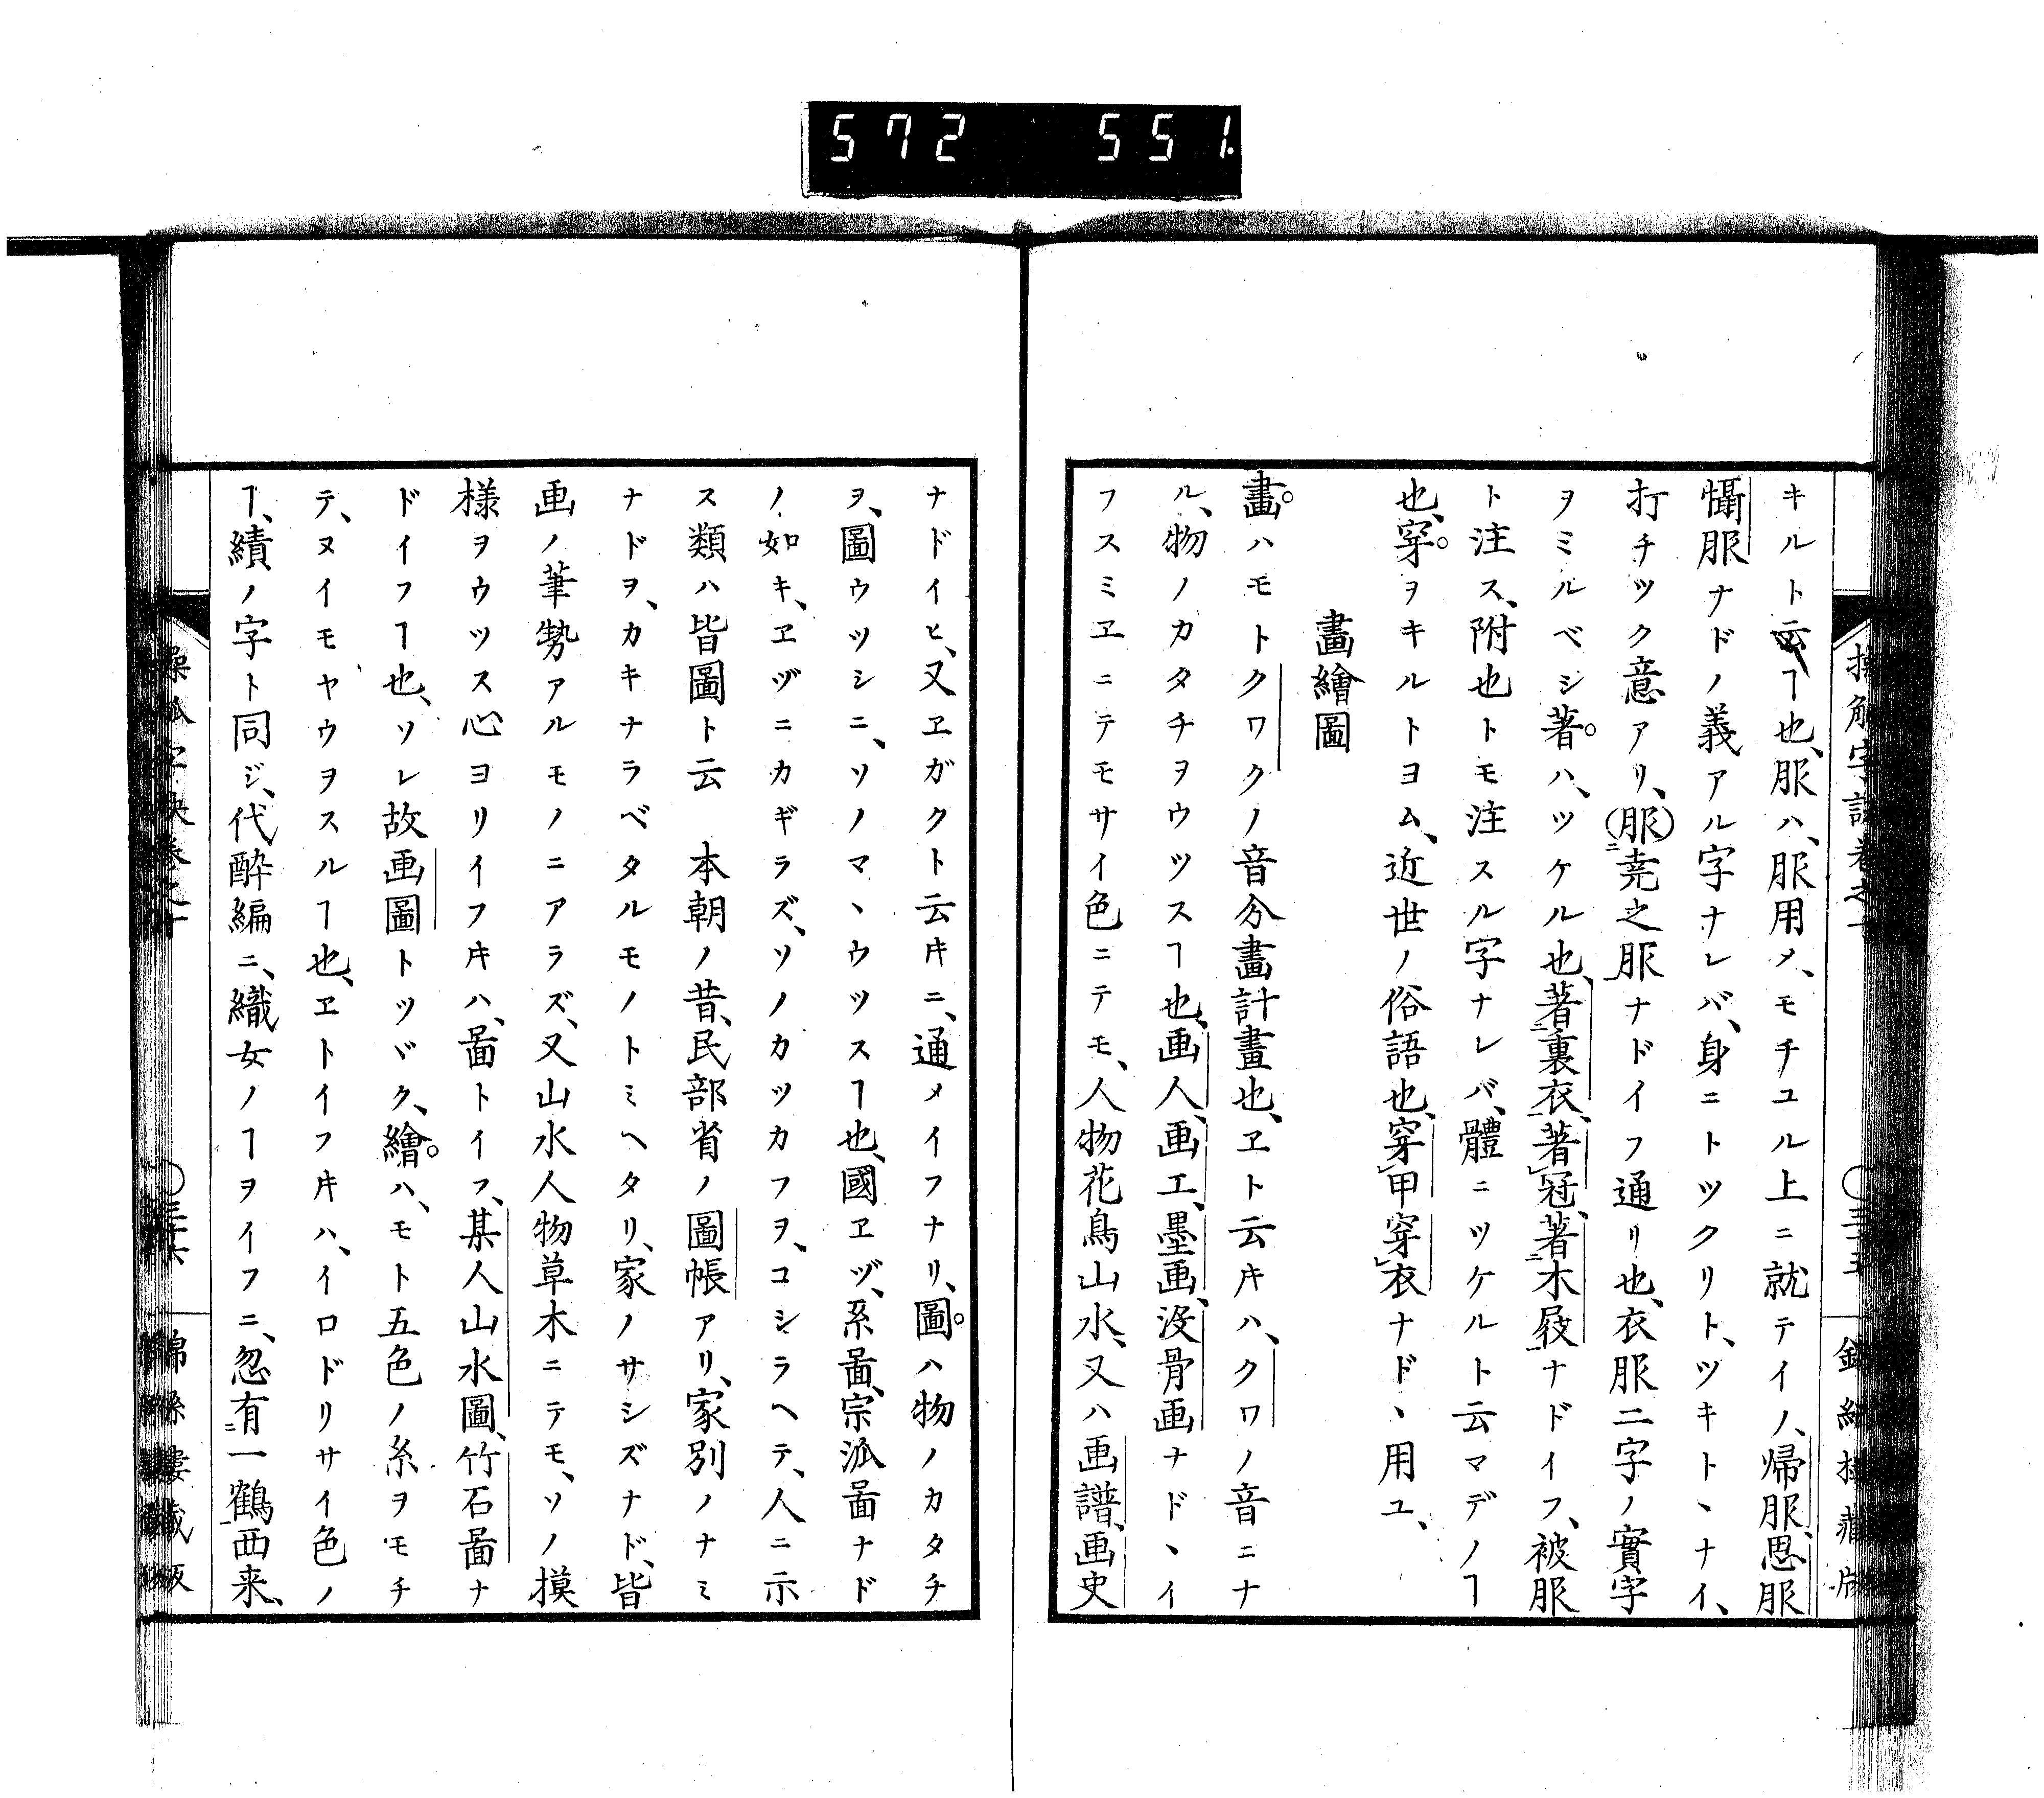 572 551.
キルト云ヿ也、服ハ、服用メ、モチユル上ニ就テイノ、帰服、思服
懾服ナドノ義アル字ナレバ、身ニトツクリト、ツキトヽナイ、
打チツク意アリ、(服)ニ尭之服ナドイフ通リ也、衣服二字ノ實字
ヲミルベシ著。ハ、ツケル也、著ニ裏衣、著冠、著ニ木屐ナドイフ、被服
ト注ス、附也トモ注スル字ナレバ、體ニツケルト云マデノヿ
也、穿。ヲキルトヨム、近世ノ俗語也、穿甲穿衣ナドヽ用ユ、
畫繪圖
畫。ハモトクワクノ音分畫計畫也、ヱト云𪜈ハ、クワノ音ニナ
ル、物ノカタチヲウツスヿ也、画人、画工、墨画、没骨画ナドヽイ
フスミヱニテモサイ色ニテモ、人物花鳥山水、又ハ画譜、画史
ナドイヒ、又ヱガクト云𪜈ニ、通メイフナリ、圖。ハ物ノカタチ
ヲ、圖ウツシニ、ソノマヽウツスヿ也、國ヱヅ、系啚、宗派啚ナド
ノ如キ、ヱヅニカギラズ、ソノカツカフヲ、コシラヘテ、人ニ示
ス類ハ皆圖ト云 本朝ノ昔、民部省ノ圖帳アリ、家別ノナミ
ナドヲ、カキナラベタルモノトミヘタリ、家ノサシズナド、皆
画ノ筆勢アルモノニアラズ、又山水人物草木ニテモ、ソノ摸
様ヲウツス心ヨリイフ𪜈ハ、啚トイフ、某人山水圖、竹石啚ナ
ドイフヿ也、ソレ故画圖トツヾク、繪。ハ、モト五色ノ糸ヲモチ
テ、ヌイモヤウヲスルヿ也、ヱトイフ𪜈ハ、イロドリサイ色ノ
ヿ、繢ノ字ト同ジ、代酔編ニ、織女ノヿヲイフニ、忽有ニ一鶴西来、
操觚字訣巻之十